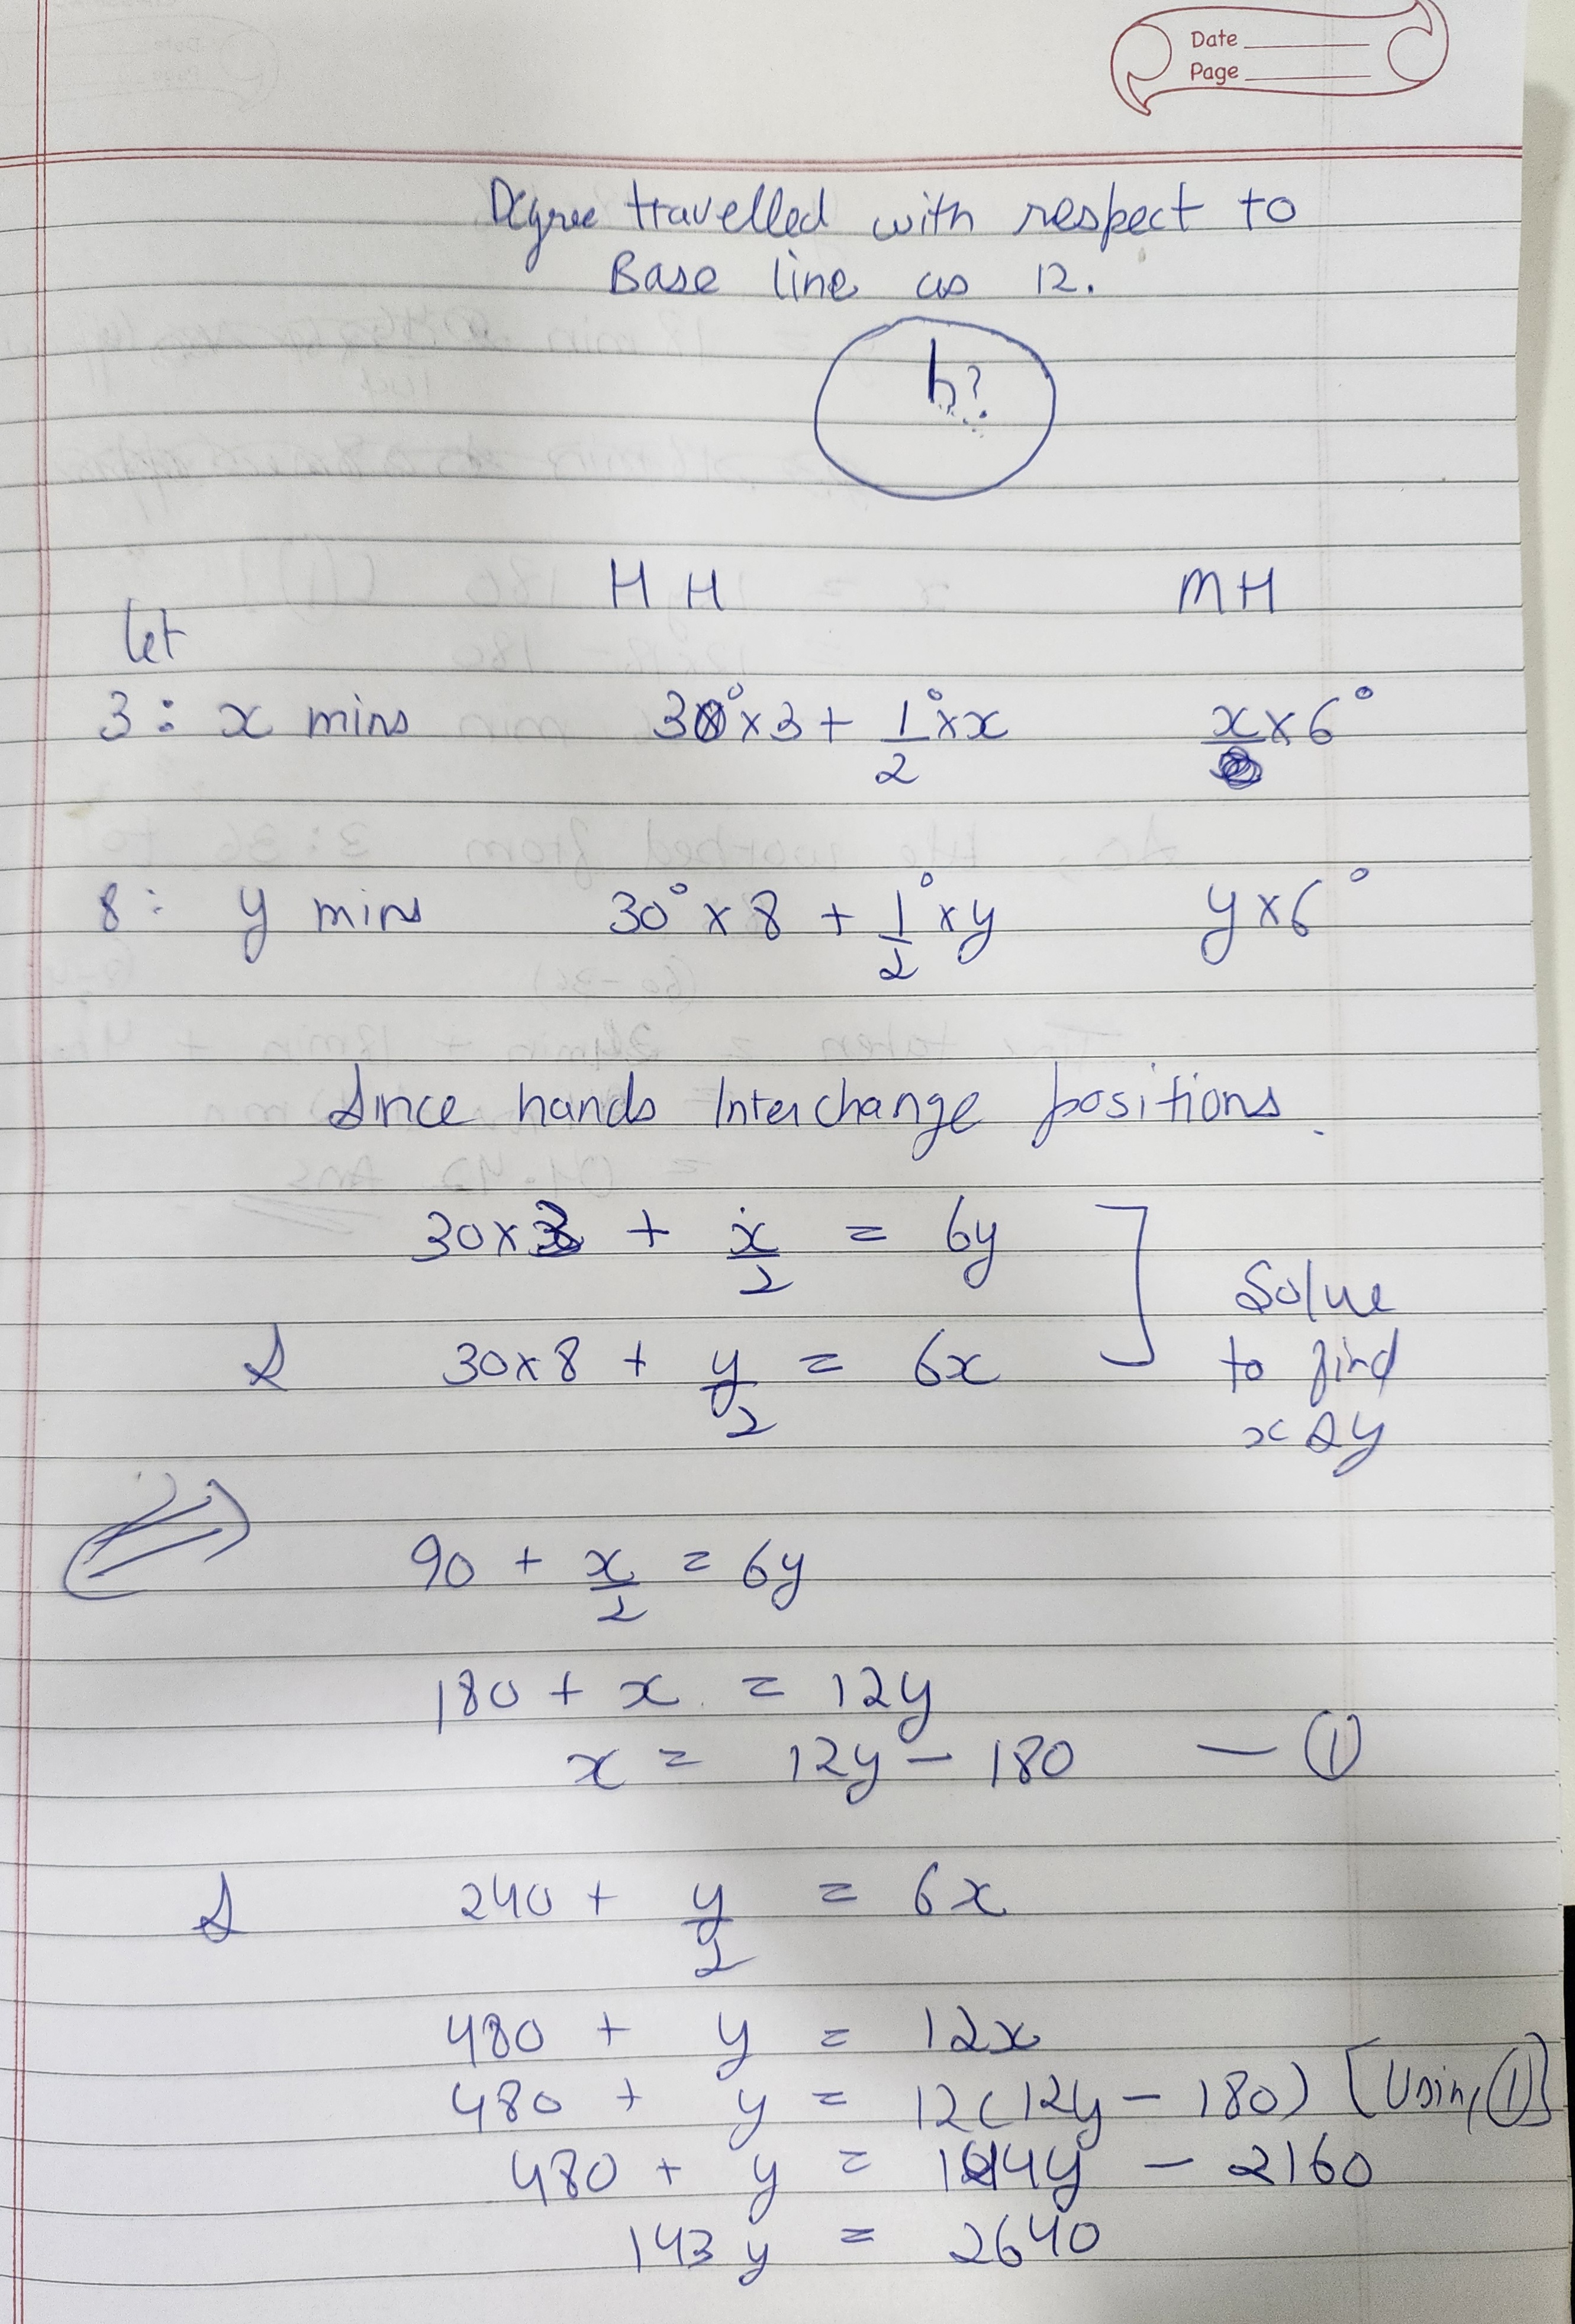 Date
Page
Degree travelled with respect to
Base line as 12.
h?
HH MH
let
3: x mins 30°×3 + 1/2°×x x×6°
8: y mins 30°×8 + 1/2°×y y×6°
Since hands Interchange positions.
30×3 + x/2 = 6y
& 30×8 + y/2 = 6x
] Solve
to find
x & y
90 + x/2 = 6y
180 + x = 12y
x = 12y - 180 — ①
& 240 + y/2 = 6x
480 + y = 12x
480 + y = 12(12y - 180) [Using ①]
480 + y = 144y - 2160
143y = 2640